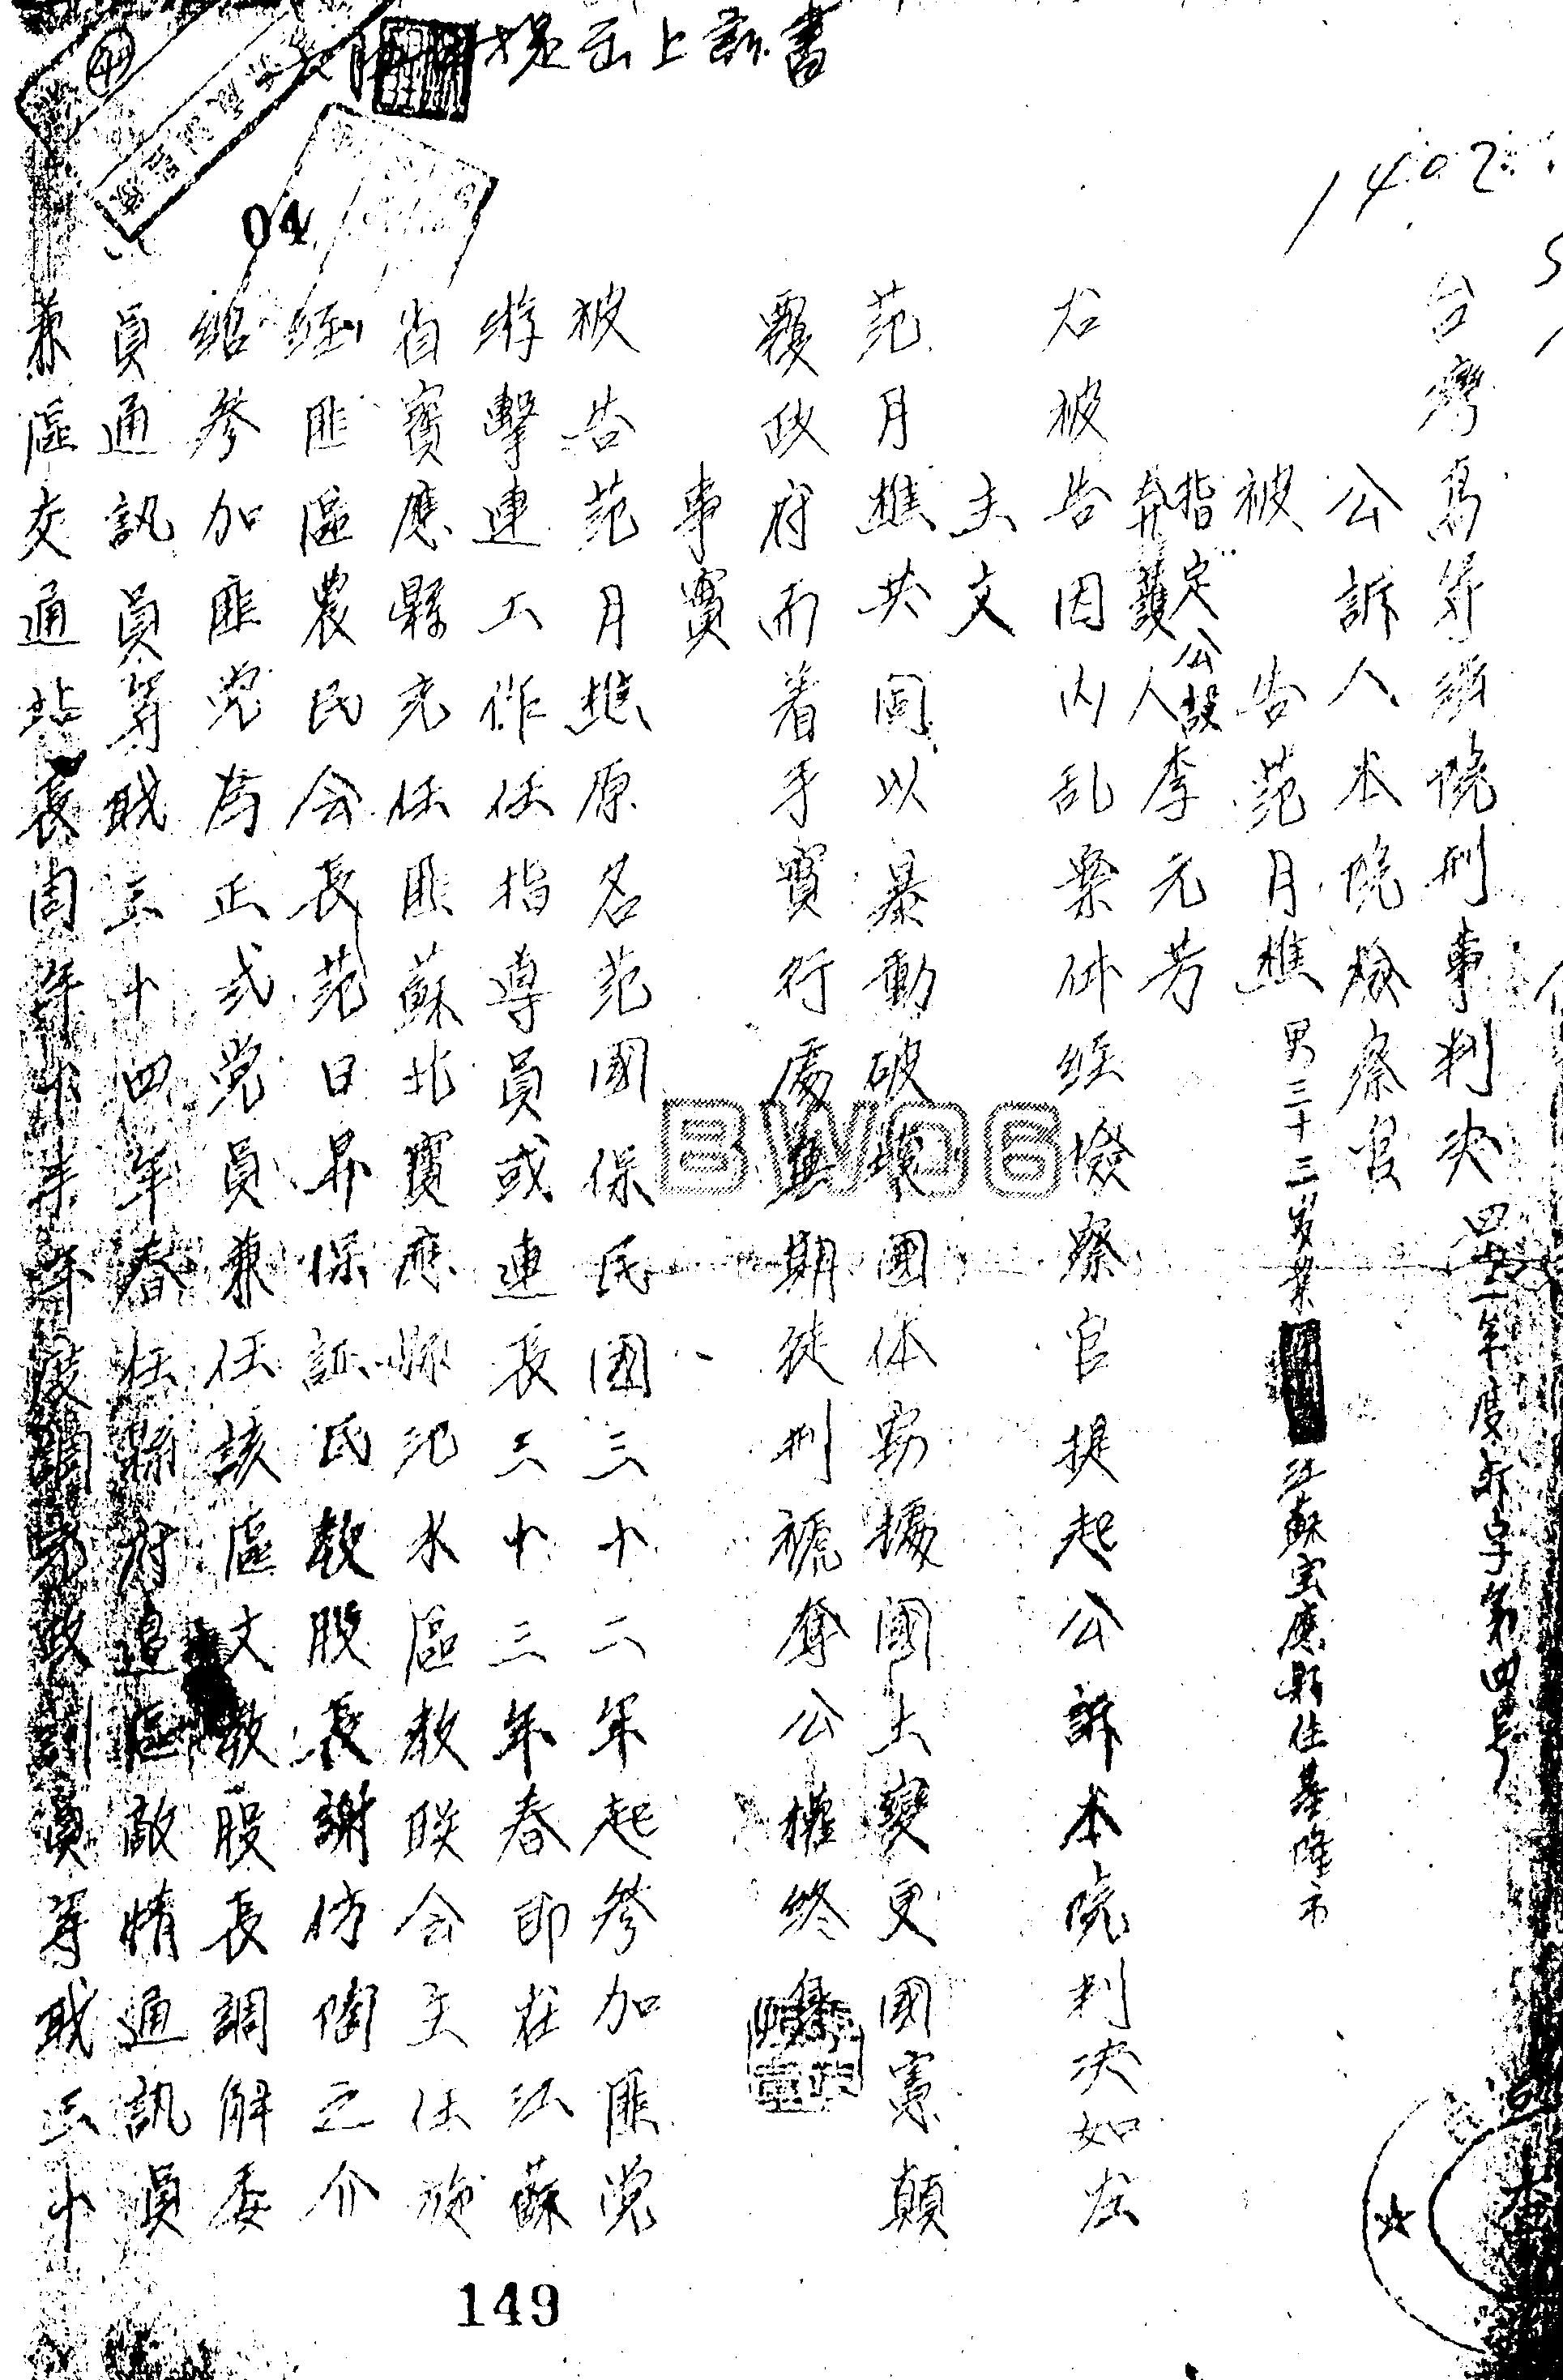 提出上訴書
1402
04
台灣高等法院刑事判決四十一年度訴字第四号
公訴人本院檢察官
被告范月樵男三十三歲業江蘇宝應縣住基隆市
指定公設
弁護人李元芳
右被告因內乱案件経檢察官提起公訴本院判決如左
主文
范月樵共同以暴動破壞國体竊據國土變更國憲顛
覆政府而着手實行處無期徒刑褫奪公權終身
事實
被告范月樵原名范國保民國三十二年起參加匪党
游擊連工作任指導員或連長三十三年春即在江蘇
省寶應縣充任匪蘇北寶應縣氾水區教联会主任旋
經匪區農民会長范日昇保証民教股長謝仿陶之介
紹參加匪党為正式党員兼任該區文教股長調解委
員通訊員等职三十四年春任縣府追區敵情通訊員
兼區交通站長同年十未年度調充政訓員等职三十
BW06
149